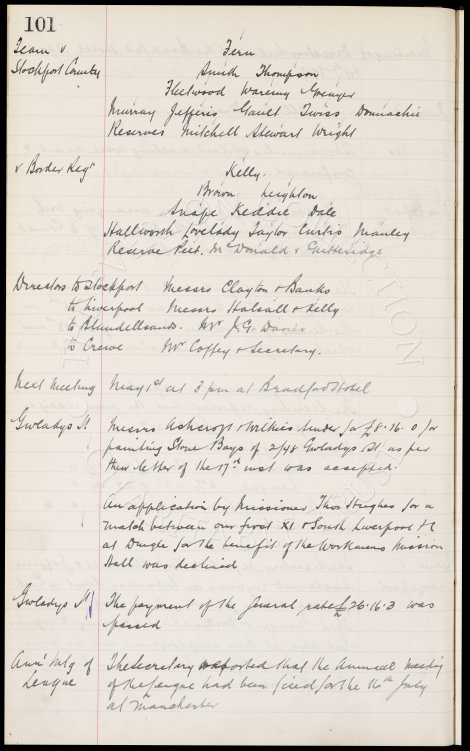 101
Team v Fern
Stockport County Smith Thompson
Fleetwood Wareing Grenyer
Murray Jefferis Gault Twiss Donnachie
Reserves Mitchell Stewart Wright
v Border Regt Kelly.
Brown Leighton
Snape Keddie Dale
Hallworth Lovelady Taylor Curtis Manley
Reserve Peet. McDonald & Gutteridge
Directors to Stockport Messrs Clayton & Banks
to Liverpool Messrs Halsall & Kelly
to Blundellsands. Mr J.G. Davies
to Crewe Mr Coffey & Secretary.
Next Meeting May 1st at 3 pm at Bradford Hotel
Gwladys St Messrs Ashcroft & Wilkies tender for £8.16.0 for
painting Stone Bays of 2/48 Gwladys St, as per
their letter of the 17th inst was accepted.
An application by Missioner Thos Hughes for a
match between our first XI & South Liverpool FC
at Dingle for the benefit of the Workmens Mission
Hall was declined
Gwladys St The payment of the General rate £26.16.3 was
passed
Ann. Mtg of The Secretary reported that the Annual Meeting
League of the League had been fixed for the 16th July
at Manchester